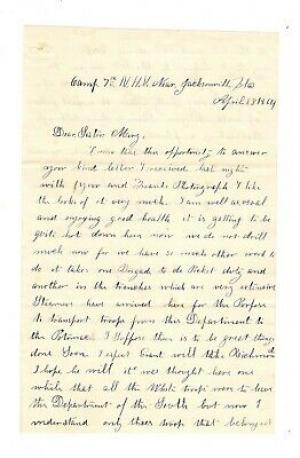 Camp 7th N.H.V. Near Jacksonville Fla
April 13 1864
Dear Sister Mary,
I now take this opportunity to answer
your kind letter I received last night
with yours and Photograph I like
the looks of it very much. I am well as usual
and enjoying good health it is getting to be
hot down here now we do not drill
much now for we have so much other work to
do it takes one to do Picket duty and
another in the trenches which are very extensive
Steamers have arrived here for the
to transport troops from this Department to
the Potomac I suppose there is to be great things
done Soon I expect Grant will take Richmond
I hope he will it was thought here one
which that all the White troops were to leave
this Department of the South but now I
understand only those troops that belonged